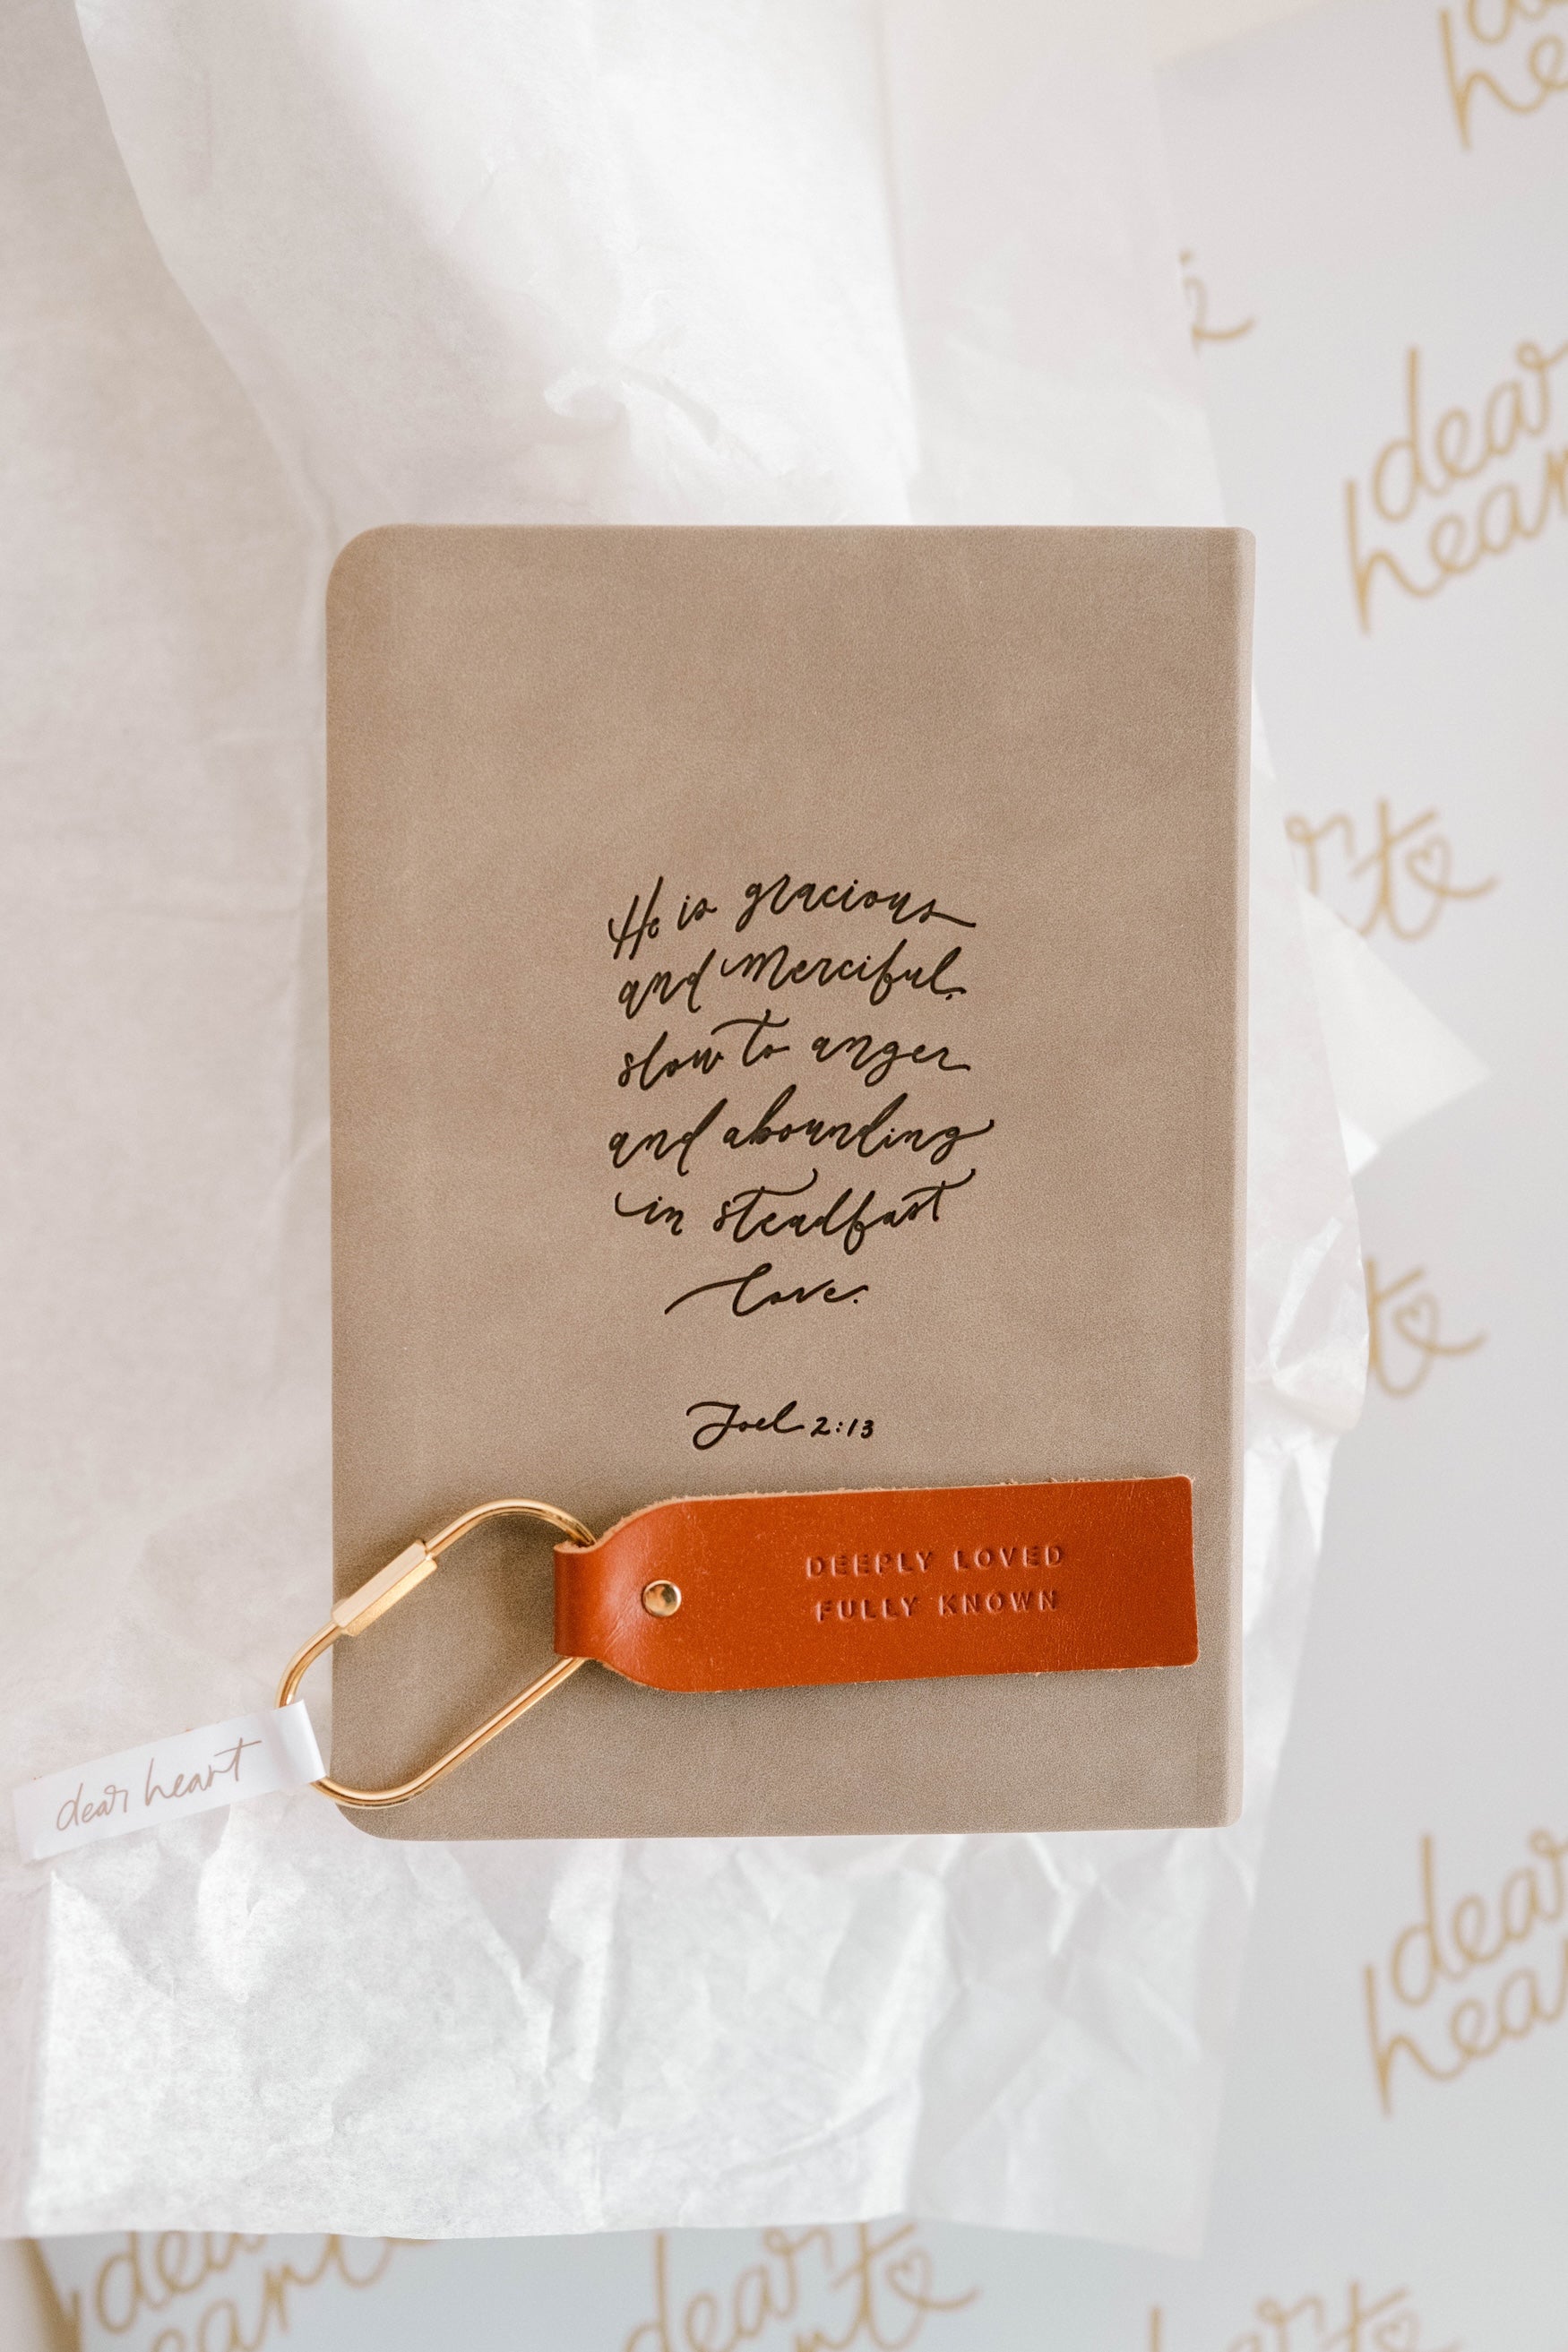 He is gracious
and merciful,
slow to anger
and abounding
in steadfast
love.
Joel 2:13
DEEPLY LOVED
FULLY KNOWN
dear heart
dear
heart
dear
hear